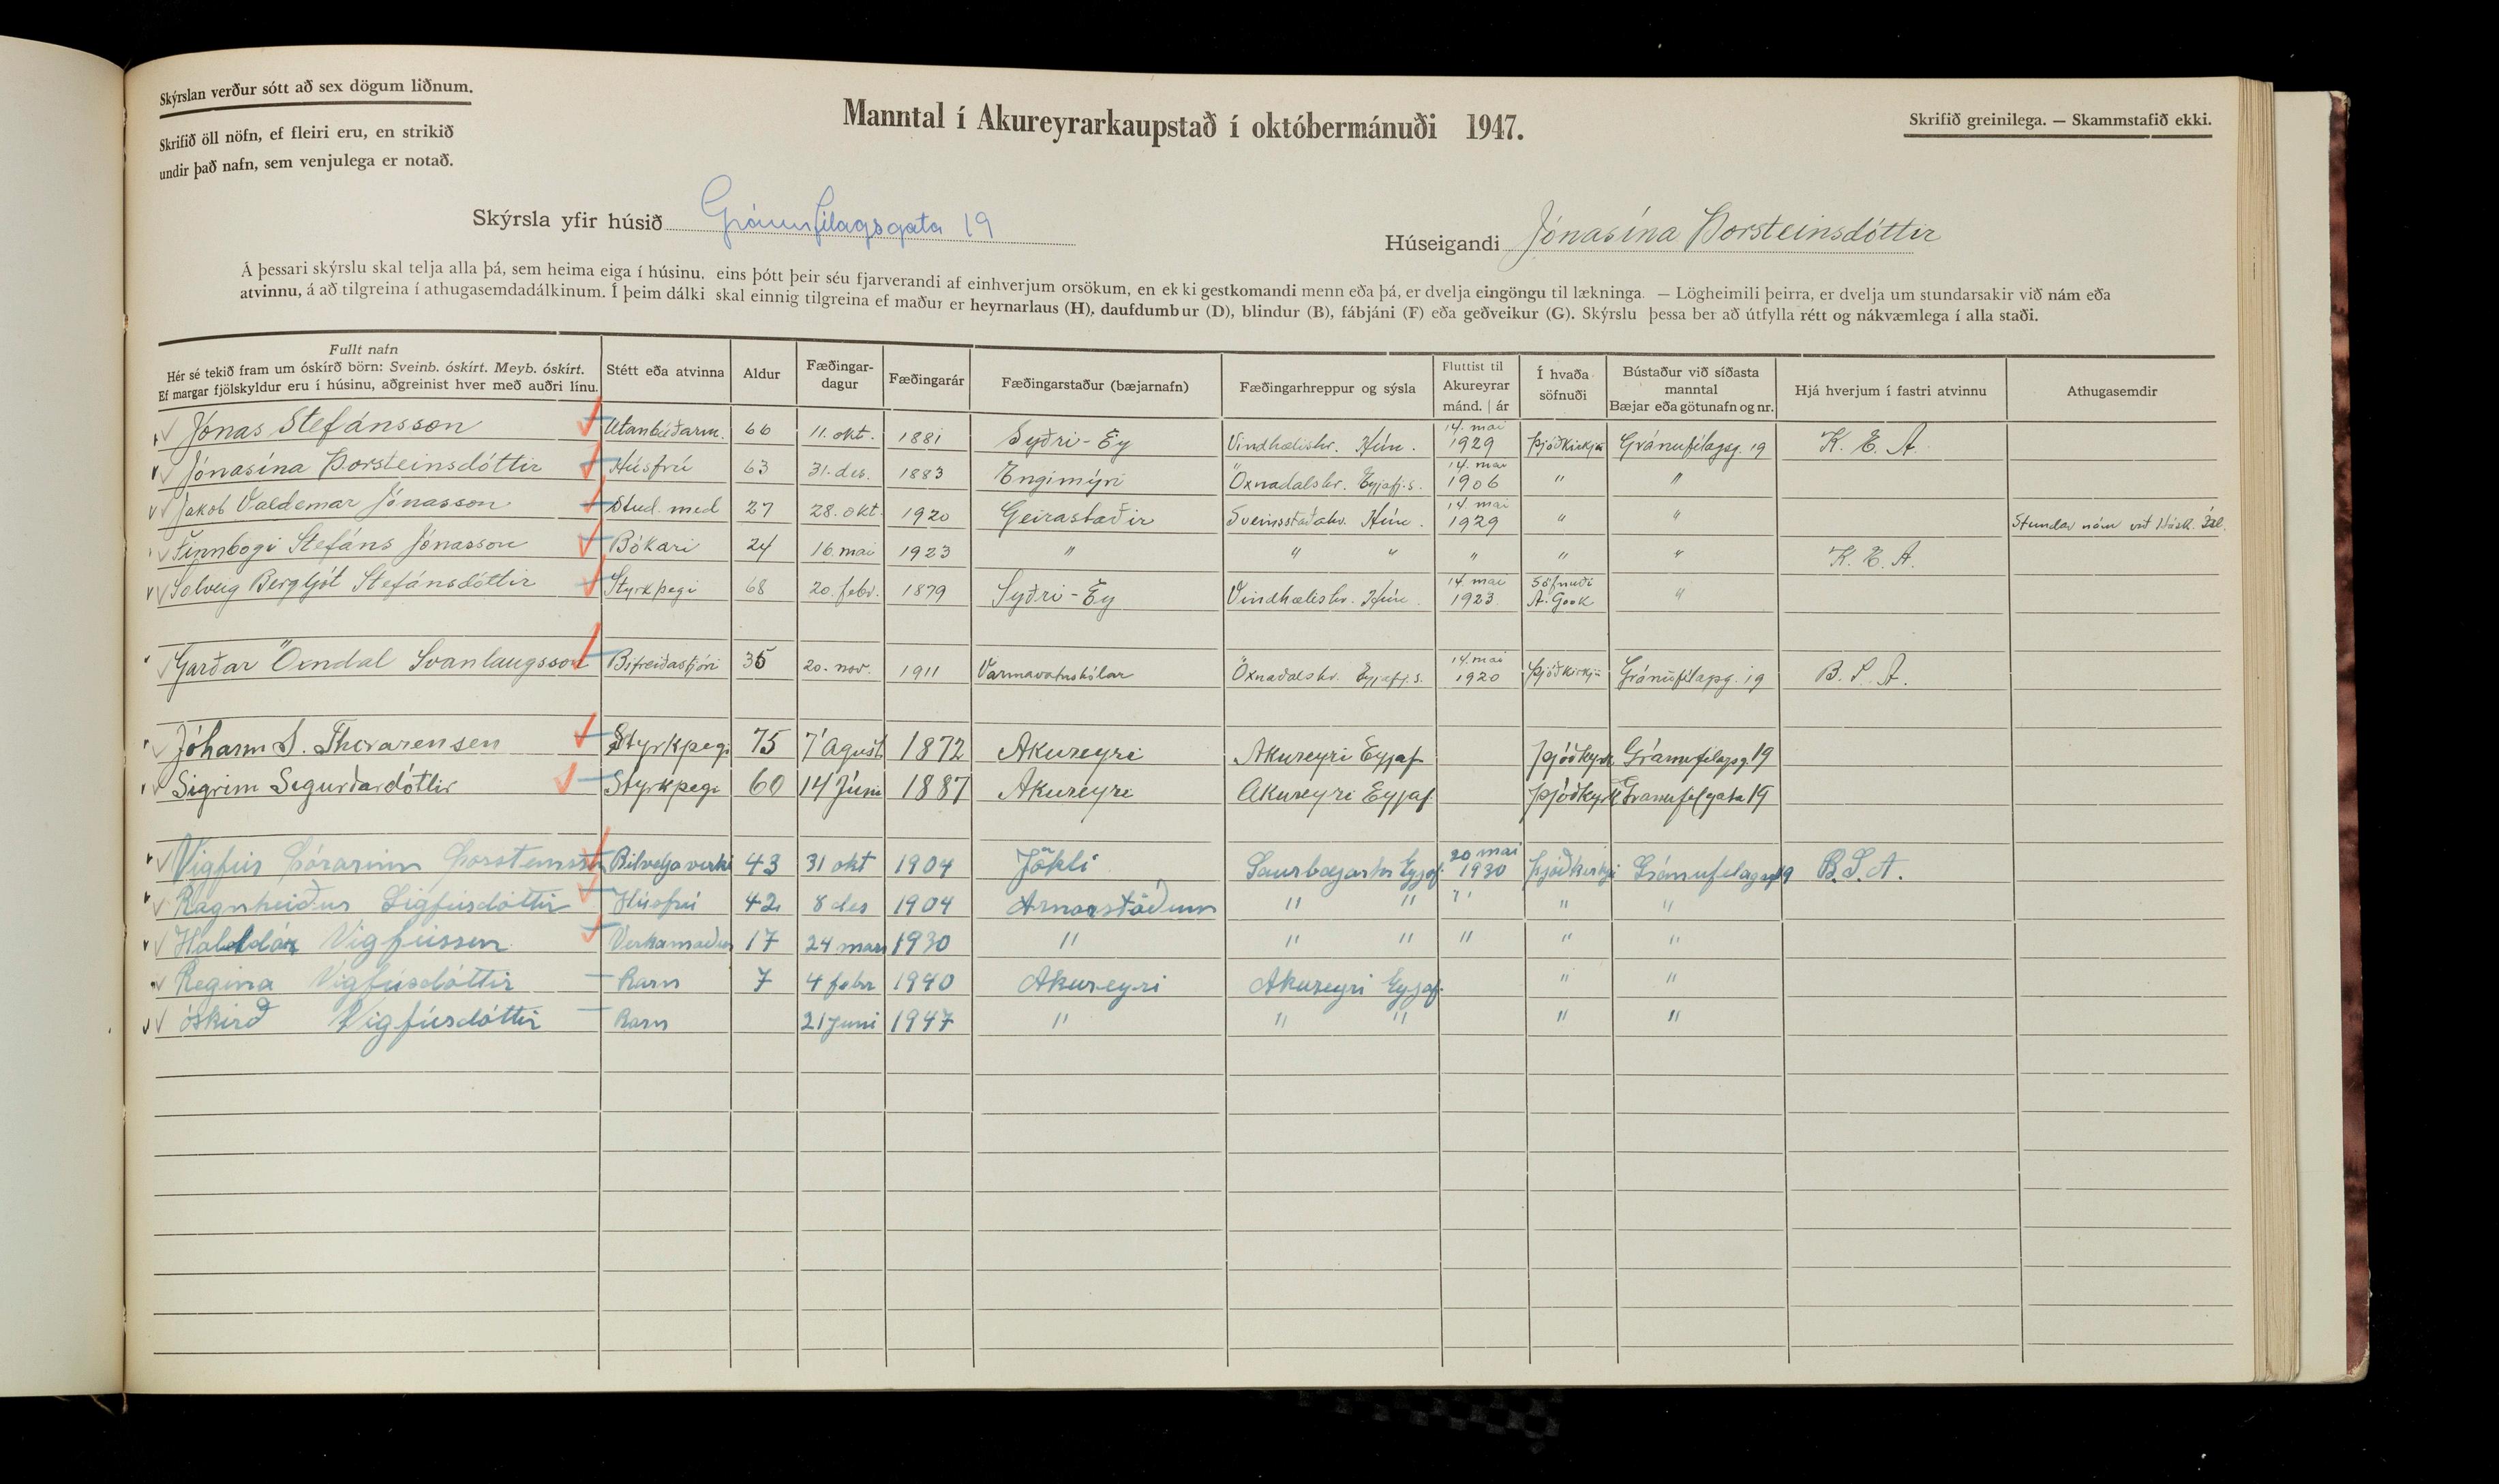 Skýrslan verður sótt að sex dögum liðnum.
Skrifið öll nöfn, ef fleiri eru, en strikið
undir það nafn, sem venjulega er notað.
Manntal í Akureyrarkaupstað í októbermánuði 1947.
Skrifið greinilega. — Skammstafið ekki.
Skýrsla yfir húsið Gránufélagsgata 19
Húseigandi Jónasína Þorsteinsdóttir
Á þessari skýrslu skal telja alla þá, sem heima eiga í húsinu, eins þótt þeir séu fjarverandi af einhverjum orsökum, en ekki gestkomandi menn eða þá, er dvelja eingöngu til lækninga. — Lögheimili þeirra, er dvelja um stundarsakir við nám eða
atvinnu, á að tilgreina í athugasemdadálkinum. Í þeim dálki skal einnig tilgreina ef maður er heyrnarlaus (H), daufdumbur (D), blindur (B), fábjáni (F) eða geðveikur (G). Skýrslu þessa ber að útfylla rétt og nákvæmlega í alla staði.
Fullt nafn
Hér sé tekið fram um óskírð börn: Sveinb. óskírt. Meyb. óskírt.
Ef margar fjölskyldur eru í húsinu, aðgreinist hver með auðri línu.
Stétt eða atvinna
Aldur
Fæðingar-
dagur
Fæðingarár
Fæðingarstaður (bæjarnafn)
Fæðingarhreppur og sýsla
Fluttist til
Akureyrar
mánd. | ár
Í hvaða
söfnuði
Bústaður við síðasta
manntal
Bæjar eða götunafn og nr.
Hjá hverjum í fastri atvinnu
Athugasemdir
Jónas Stefánsson Utanbúðarm. 66 11. okt. 1881 Syðri-Ey Vindhælishr. Hún. 14. mai 1929 Þjóðkirkju Gránufélagsg. 19 K. E. A.
Jónasína Þorsteinsdóttir Húsfrú 63 31. des. 1883 Engimýri Öxnadalshr. Eyjafj.s. 14. mai 1906 " "
Jakob Valdemar Jónasson Stud. med 27 28. okt. 1920 Geirastaðir Sveinsstaðahr. Hún. 14. mai 1929 " " Stundar nám við Hásk. Ísl.
Finnbogi Stefáns Jónasson Bókari 24 16. mai 1923 " " " " " " K. E. A.
Solveig Bergljót Stefánsdóttir Styrkþegi 68 20. febr. 1879 Syðri-Ey Vindhælishr. Hún. 14. mai 1923 Söfnuði A. Gook "
Garðar Öxndal Svanlaugsson Bifreiðastjóri 35 20. nov. 1911 Varmavatnshólar Öxnadalshr. Eyjafj.s. 14. mai 1920 Þjóðkirkju Gránufélagsg. 19 B. S. A.
Jóhann S. Thorarensen Styrkþegi 75 7 Agust 1872 Akureyri Akureyri Eyjaf Þjóðkyrk. Gránufelagsg 19
Sigrim Segurðardóttir Styrkþegi 60 14 Júni 1887 Akureyri Akureyri Eyjaf. Þjóðkyrk Granufelgata 19
Vigfús Þórarinn Þorsteinsson Bilvelja verki 43 31 okt 1904 Jökli Saurbæjarhr Eyjaf. 20 mai 1930 Þjóðkirkju Gránufelagsg 19 B. S. A.
Ragnheiður Sigfúsdóttir Húsfrú 42 8 des 1904 Arnarstöðum " " " " "
Halldór Vigfússon Verkamaður 17 24 mars 1930 " " " " " "
Regina Vigfúsdóttir Barn 7 4 febr 1940 Akureyri Akureyri Eyjaf. " "
óskírð Vigfúsdóttir Barn 21 Juni 1947 " " " " "